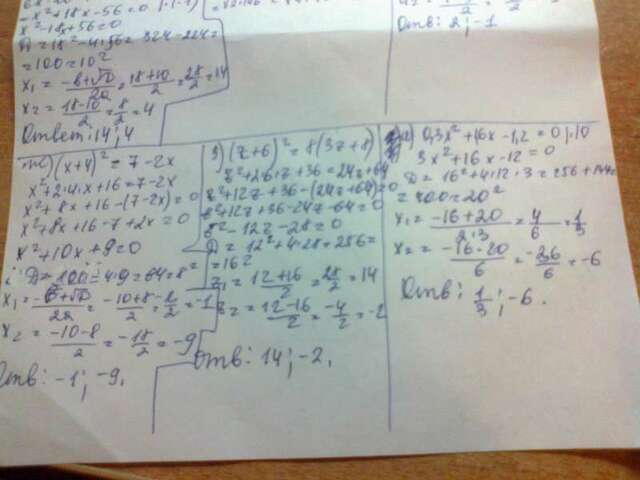 -x²+18x-56=0 |·(-1)
x²-18x+56=0
D=18²-4·56=324-224=
=100=10²
x₁=(-b+√D)/2a=(18+10)/2=28/2=14
x₂=(18-10)/2=8/2=4
Ответ: 14; 4
Отв: 2; -1
ж) (x+4)²=7-2x
x²+2·4·x+16=7-2x
x²+8x+16-(7-2x)=0
x²+8x+16-7+2x=0
x²+10x+9=0
D=100-4·9=64=8²
x₁=(-b+√D)/2a=(-10+8)/2=-2/2=-1
x₂=(-10-8)/2=-18/2=-9
Отв: -1; -9.
з) (z+6)²=8(3z+8)
z²+2·6·z+36=24z+64
z²+12z+36-(24z+64)=0
z²+12z+36-24z-64=0
z²-12z-28=0
D=12²+4·28=256=
=16²
z₁=(12+16)/2=28/2=14
z₂=(12-16)/2=-4/2=-2
Отв: 14; -2.
а) 0,3x²+1,6x-1,2=0 |·10
3x²+16x-12=0
D=16²+4·12·3=256+144=
=400=20²
x₁=(-16+20)/2·3=4/6=1/3
x₂=(-16-20)/6=-36/6=-6
Отв: 1/3; -6.